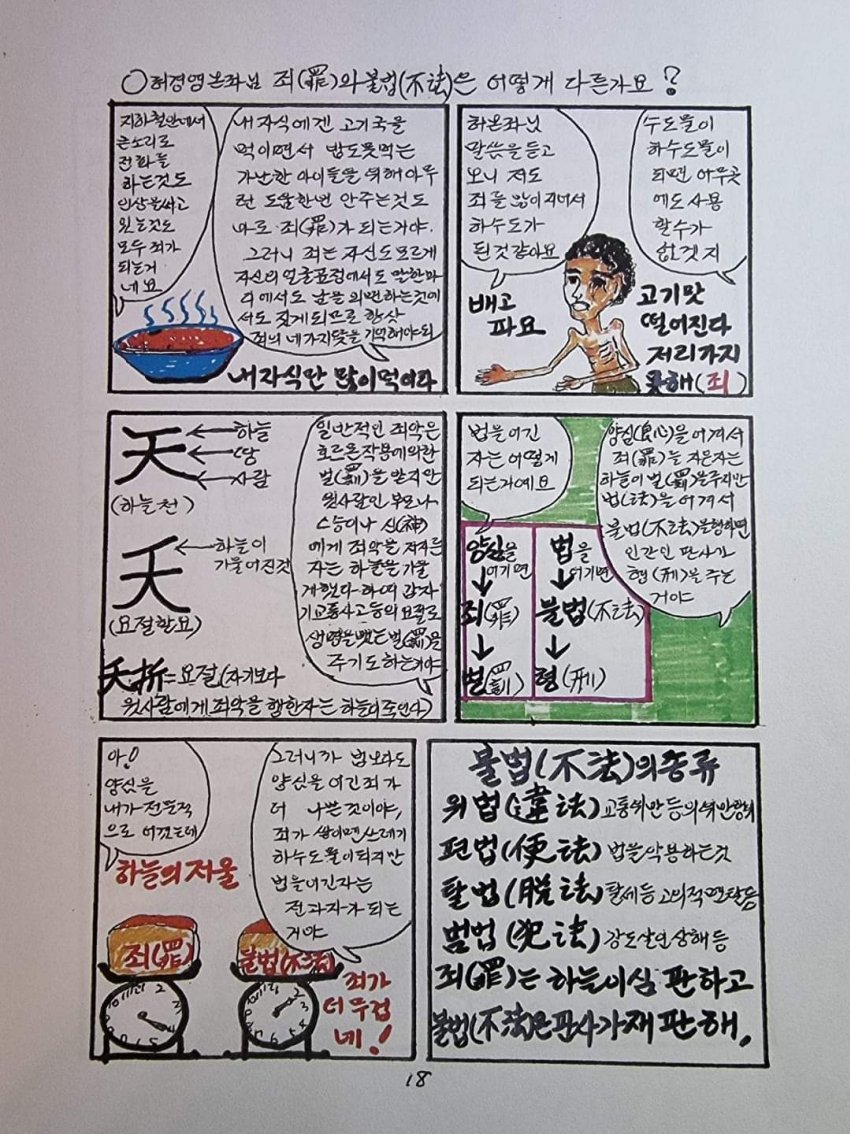 ○허경영본좌님 죄(罪)와 불법(不法)은 어떻게 다른가요?
지하철안에서
큰소리로
전화를
하는것도
인상을쓰고
있는것도
모두 죄가
되는거
네요
내 자식에겐 고기국을
먹이면서 밥도못먹는
가난한 아이들을 위해 아무
런 도움한번 안주는것도
바로 죄(罪)가 되는거야.
그러니 죄는 자신도 모르게
자신의 얼굴표정에서도 말한마
디에서도 남을 외면하는것에
서도 짓게되므로 항상
죄의 네가지뜻을 기억해야되
내 자식만 많이먹어라
허본좌님
말씀을듣고
보니 저도
죄를 많이 지어서
하수도가
된것 같아요
수도물이
하수도물이
되면 아무곳
에도 사용
할수가
없겟지
배고
파요
고기맛
떨어진다
저리가지
못해(죄)
天
하늘
땅
사람
(하늘천)
夭
하늘이
기울어진것
(요절할요)
夭折=요절(자기보다
윗사람에게 죄악을 행한자는 하늘이
일반적인 죄악은
호르몬작용에의한
벌(罰)을 받지만
윗사람인 부모나
스승이나 신(神)
에게 죄악을 저지른
자는 하늘을 기울
게했다 하여 갑자
기교통사고등의 요절로
생명을 뺏는벌(罰)을
주기도하는거야
법을어긴
자는 어떻게
되는거에요
양심(良心)을 어겨서
죄(罪)를 지은자는
하늘이 벌(罰)을주지만
법(法)을 어겨서
불법(不法)을행하면
인간인 판사가
형(刑)을 주는
거야
양심을
어기면
죄(罪)
벌(罰)
법을
어기면
불법(不法)
형(刑)
아!
양심을
내가 전폭적
으로 어겼는데
그러니까 법보다도
양심을 어긴죄가
더 나쁜것이야,
죄가 쌓이면 쓰레기
하수도물이되지만
법을어긴자는
전과자가 되는
거야
하늘의 저울
죄(罪)
불법(不法)
죄가
더 무겁
네!
불법(不法)의 종류
위법(違法) 교통위반 등의 위반행위
편법(便法) 법을악용하는것
탈법(脫法) 탈세등 고의적
범법(犯法) 강도살인상해등
죄(罪)는 하늘이심판하고
불법(不法)은 판사가재판해.
18